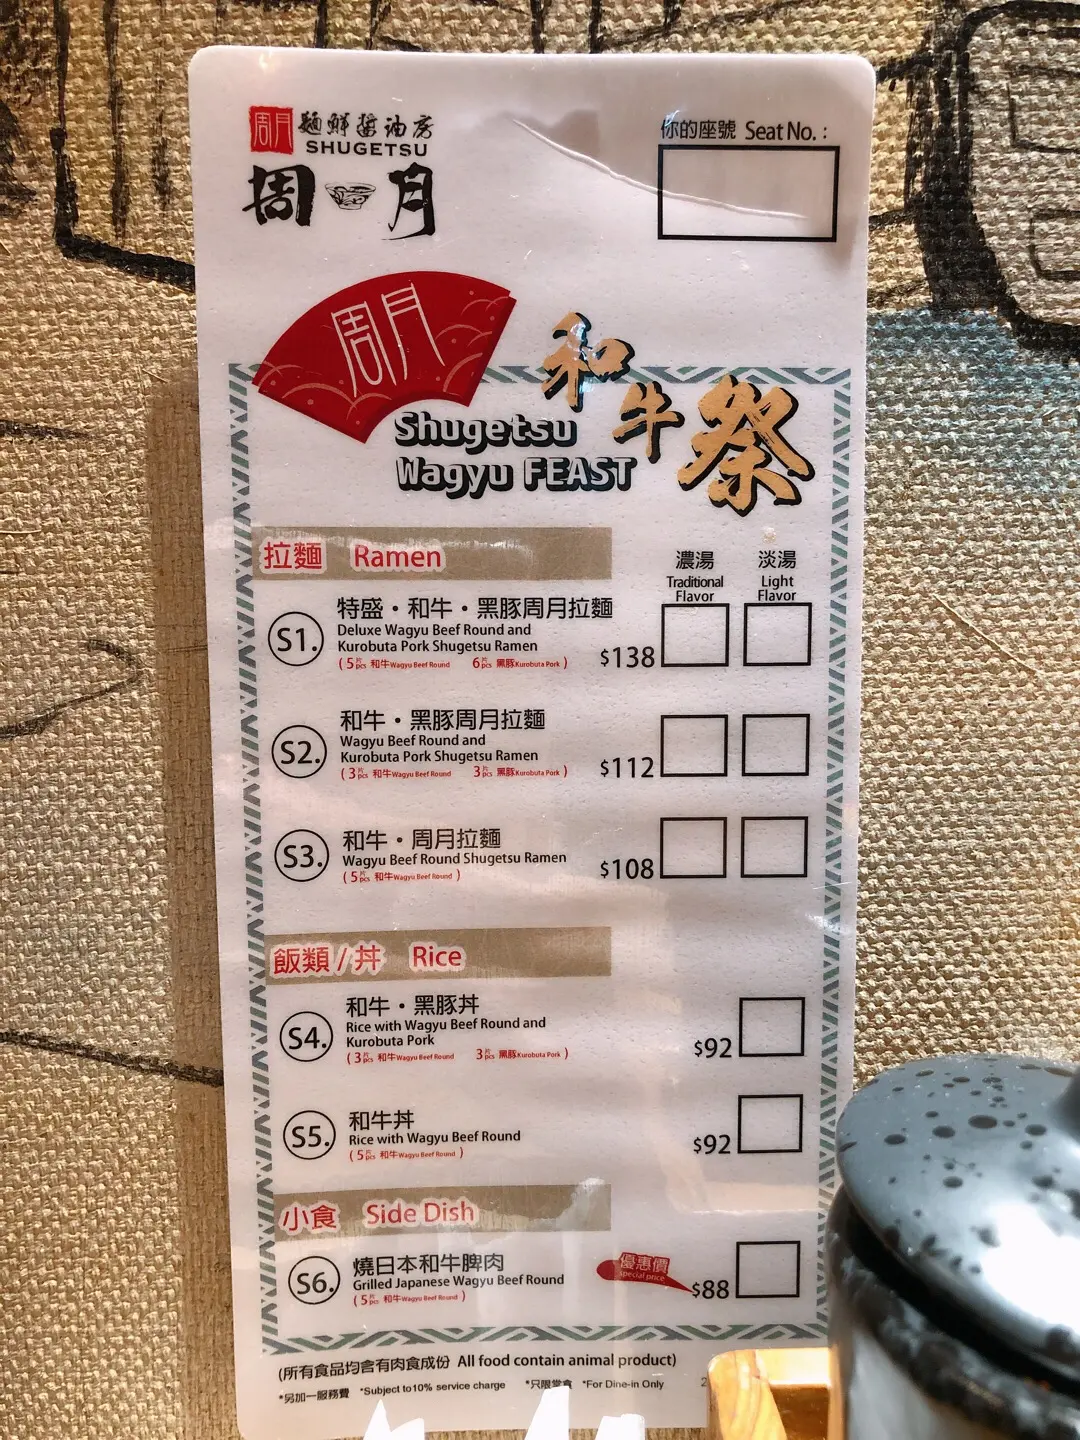 周月 麵鮮醬油房
SHUGETSU
周月
你的座號 Seat No. :
周月
和牛祭
Shugetsu
Wagyu FEAST
拉麵 Ramen
濃湯 淡湯
Traditional Flavor Light Flavor
S1. 特盛・和牛・黑豚周月拉麵
Deluxe Wagyu Beef Round and
Kurobuta Pork Shugetsu Ramen
(5片pcs 和牛Wagyu Beef Round 6片pcs 黑豚Kurobuta Pork) $138
S2. 和牛・黑豚周月拉麵
Wagyu Beef Round and
Kurobuta Pork Shugetsu Ramen
(3片pcs 和牛Wagyu Beef Round 3片pcs 黑豚Kurobuta Pork) $112
S3. 和牛・周月拉麵
Wagyu Beef Round Shugetsu Ramen
(5片pcs 和牛Wagyu Beef Round) $108
飯類 / 丼 Rice
S4. 和牛・黑豚丼
Rice with Wagyu Beef Round and
Kurobuta Pork
(3片pcs 和牛Wagyu Beef Round 3片pcs 黑豚Kurobuta Pork) $92
S5. 和牛丼
Rice with Wagyu Beef Round
(5片pcs 和牛Wagyu Beef Round) $92
小食 Side Dish
S6. 燒日本和牛脾肉
Grilled Japanese Wagyu Beef Round
(5片pcs 和牛Wagyu Beef Round)
優惠價
special price
$88
(所有食品均含有肉食成份 All food contain animal product)
*另加一服務費 *Subject to10% service charge *只限堂食 *For Dine-in Only